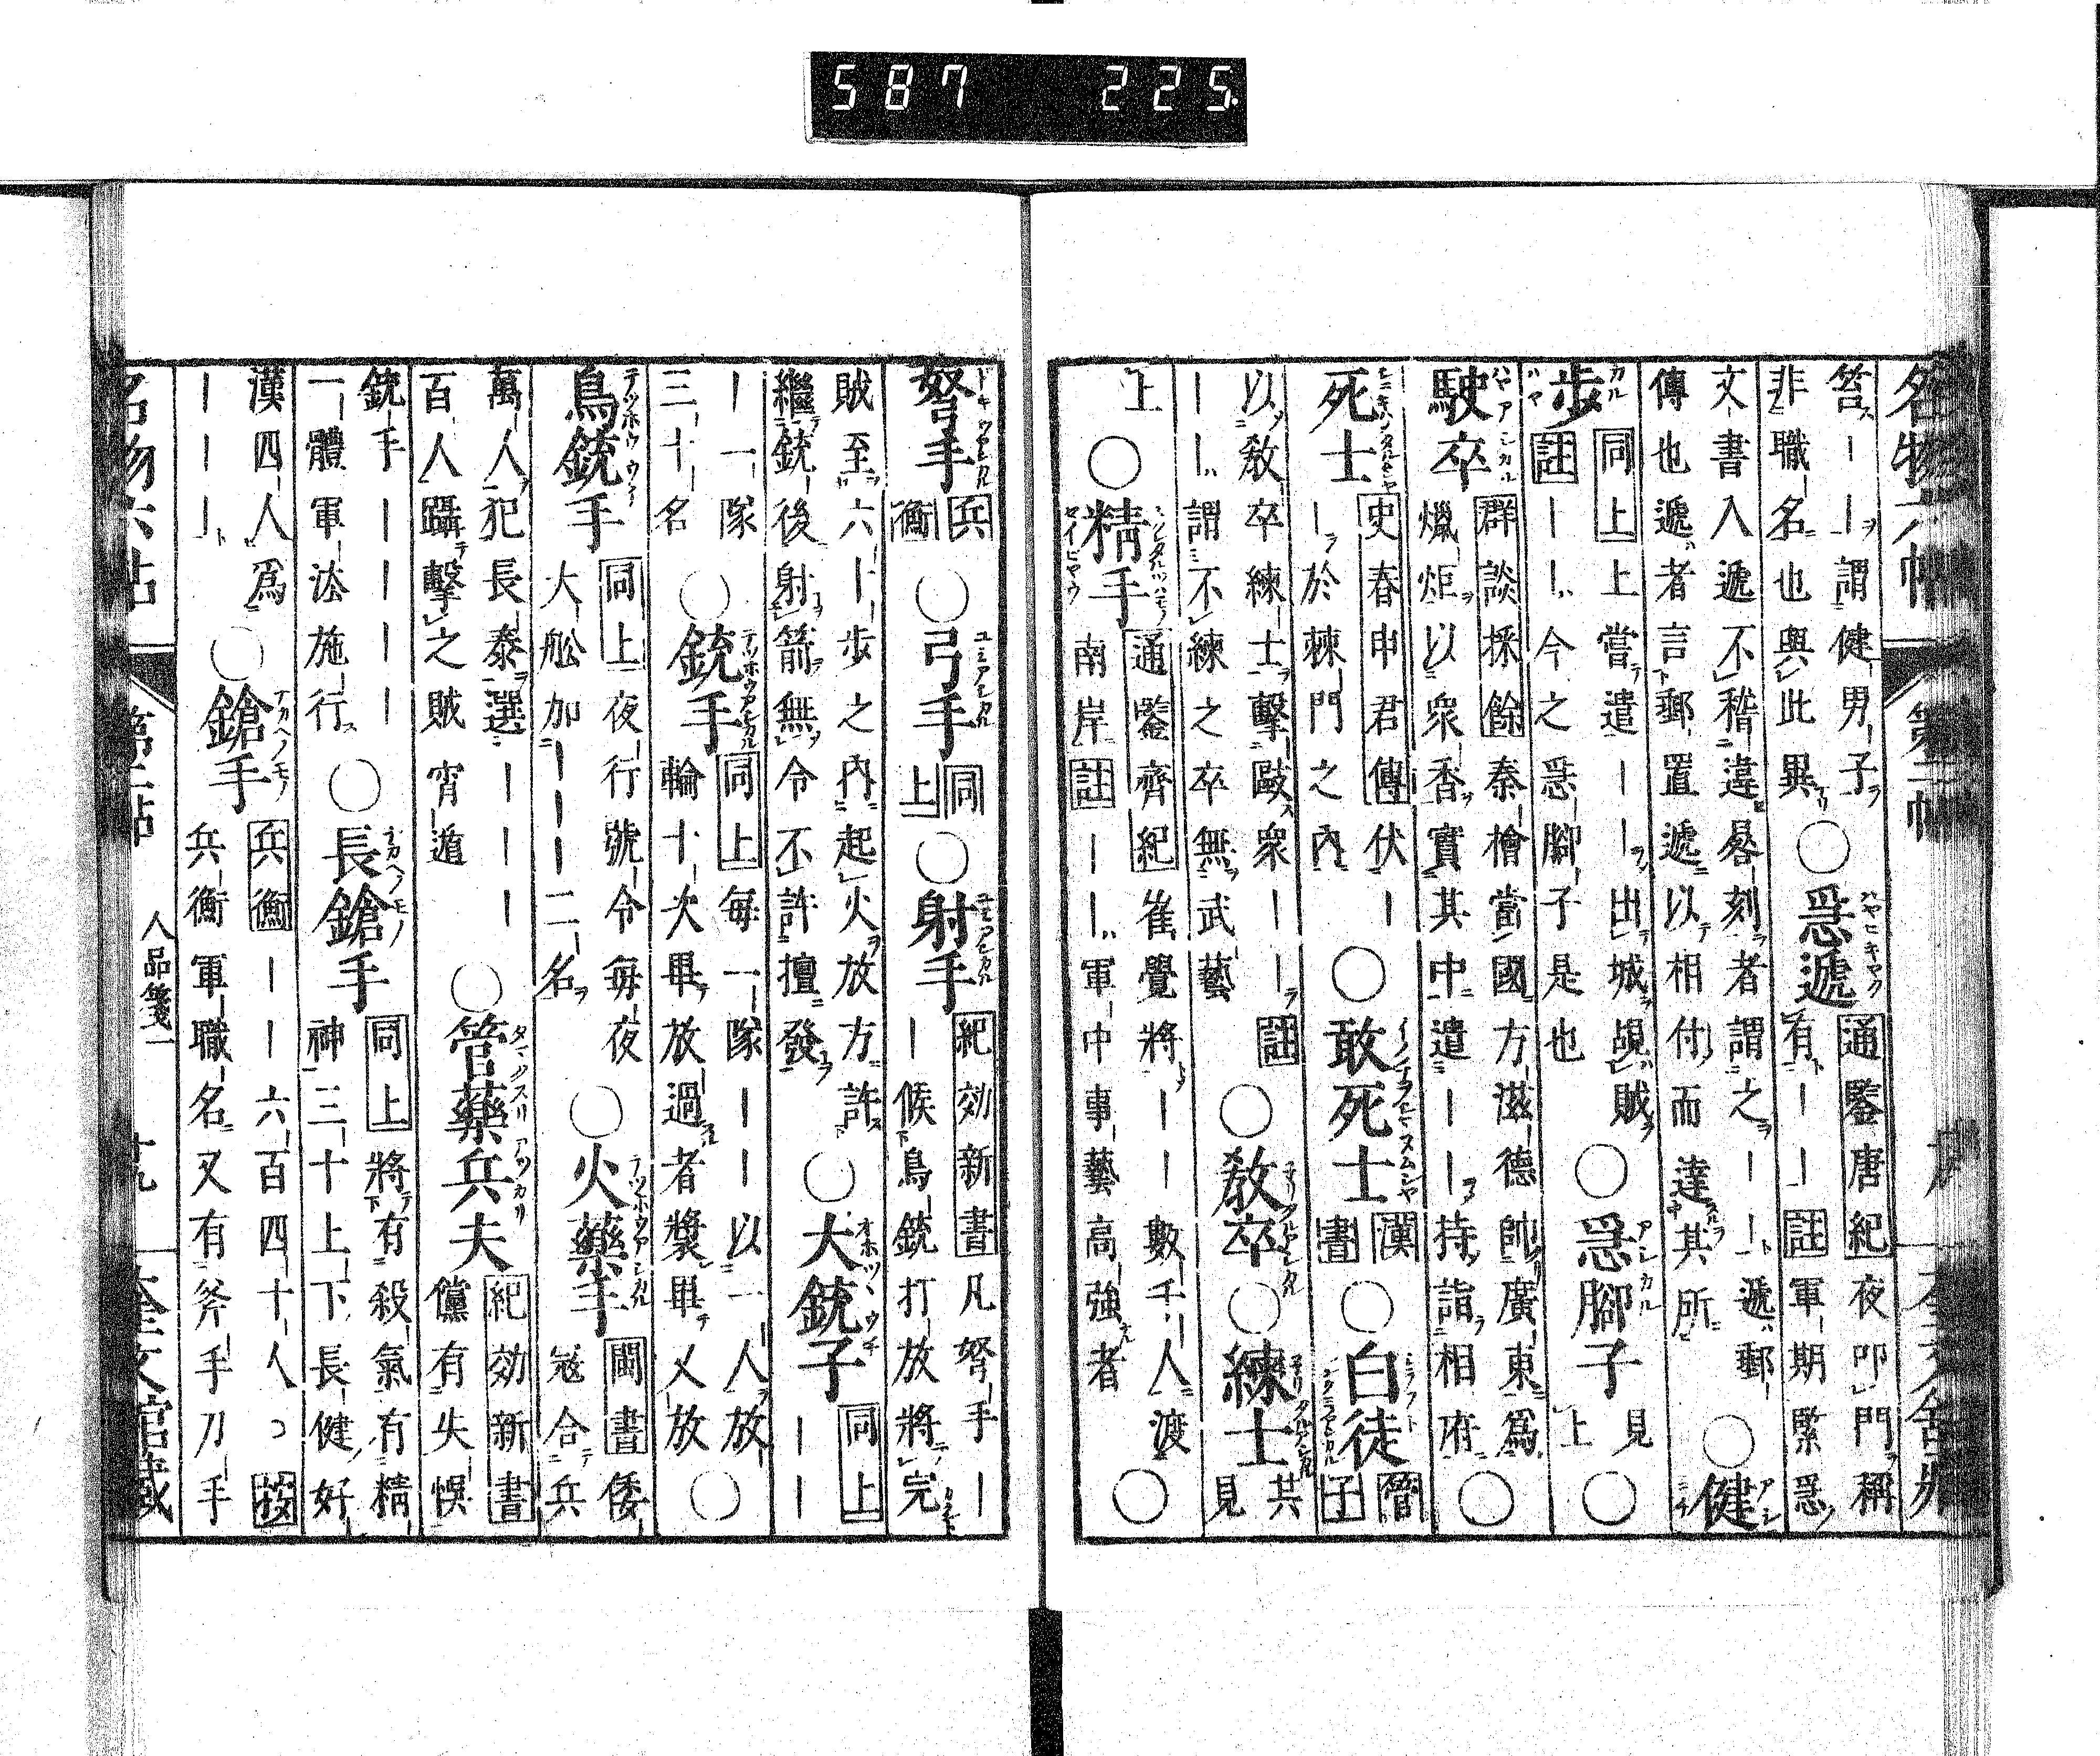 587 225
名物六帖 第二帖
笞――謂健男子
非職名也與此異○急遞通鑒唐紀夜叩門稱
有――註軍期緊急
文書入遞不稽違晷刻者謂之――遞郵
傳也遞者言郵置遞以相付而達其所○健
步同上上嘗遣――出城覘賊○急腳子見上○
註――今之急腳子是也
駛卒群談採餘秦檜當國方滋德帥廣東爲
爉炬以衆香實其中遣――持詣相府○
死士史春申君傳伏―
―於棘門之內○敢死士漢書○白徒管子
以教卒練士擊敺衆――註
――謂不練之卒無武藝○教卒○練士共見
上○精手通鑒齊紀崔覺將――數千人渡
南岸註――軍中事藝高強者○
弩手兵衡○弓手同上○射手紀効新書凡弩手―
―候鳥銃打放將完
賊至六十步之內起火放方許○大銃子同上――
繼銃後射箭無令不許擅發
―一隊○銃手同上每一隊――以一人放
三十名 輪十次畢放過者裝畢乂放○
鳥銃手同上夜行號令每夜○火藥手閩書倭
大舩加―――二名 寇合兵
萬人犯長泰選―――○管藥兵夫紀効新書
百人躡擊之賊宵遁 儻有失悞
銃手――――○長鎗手同上將有殺氣有精
一體軍法施行 神三十上下長健好
漢四人爲○鎗手兵衡――六百四十人○按
―――兵衡軍職名又有斧手刀手
名物六帖 第二帖 人品箋一 十九 奎文館藏